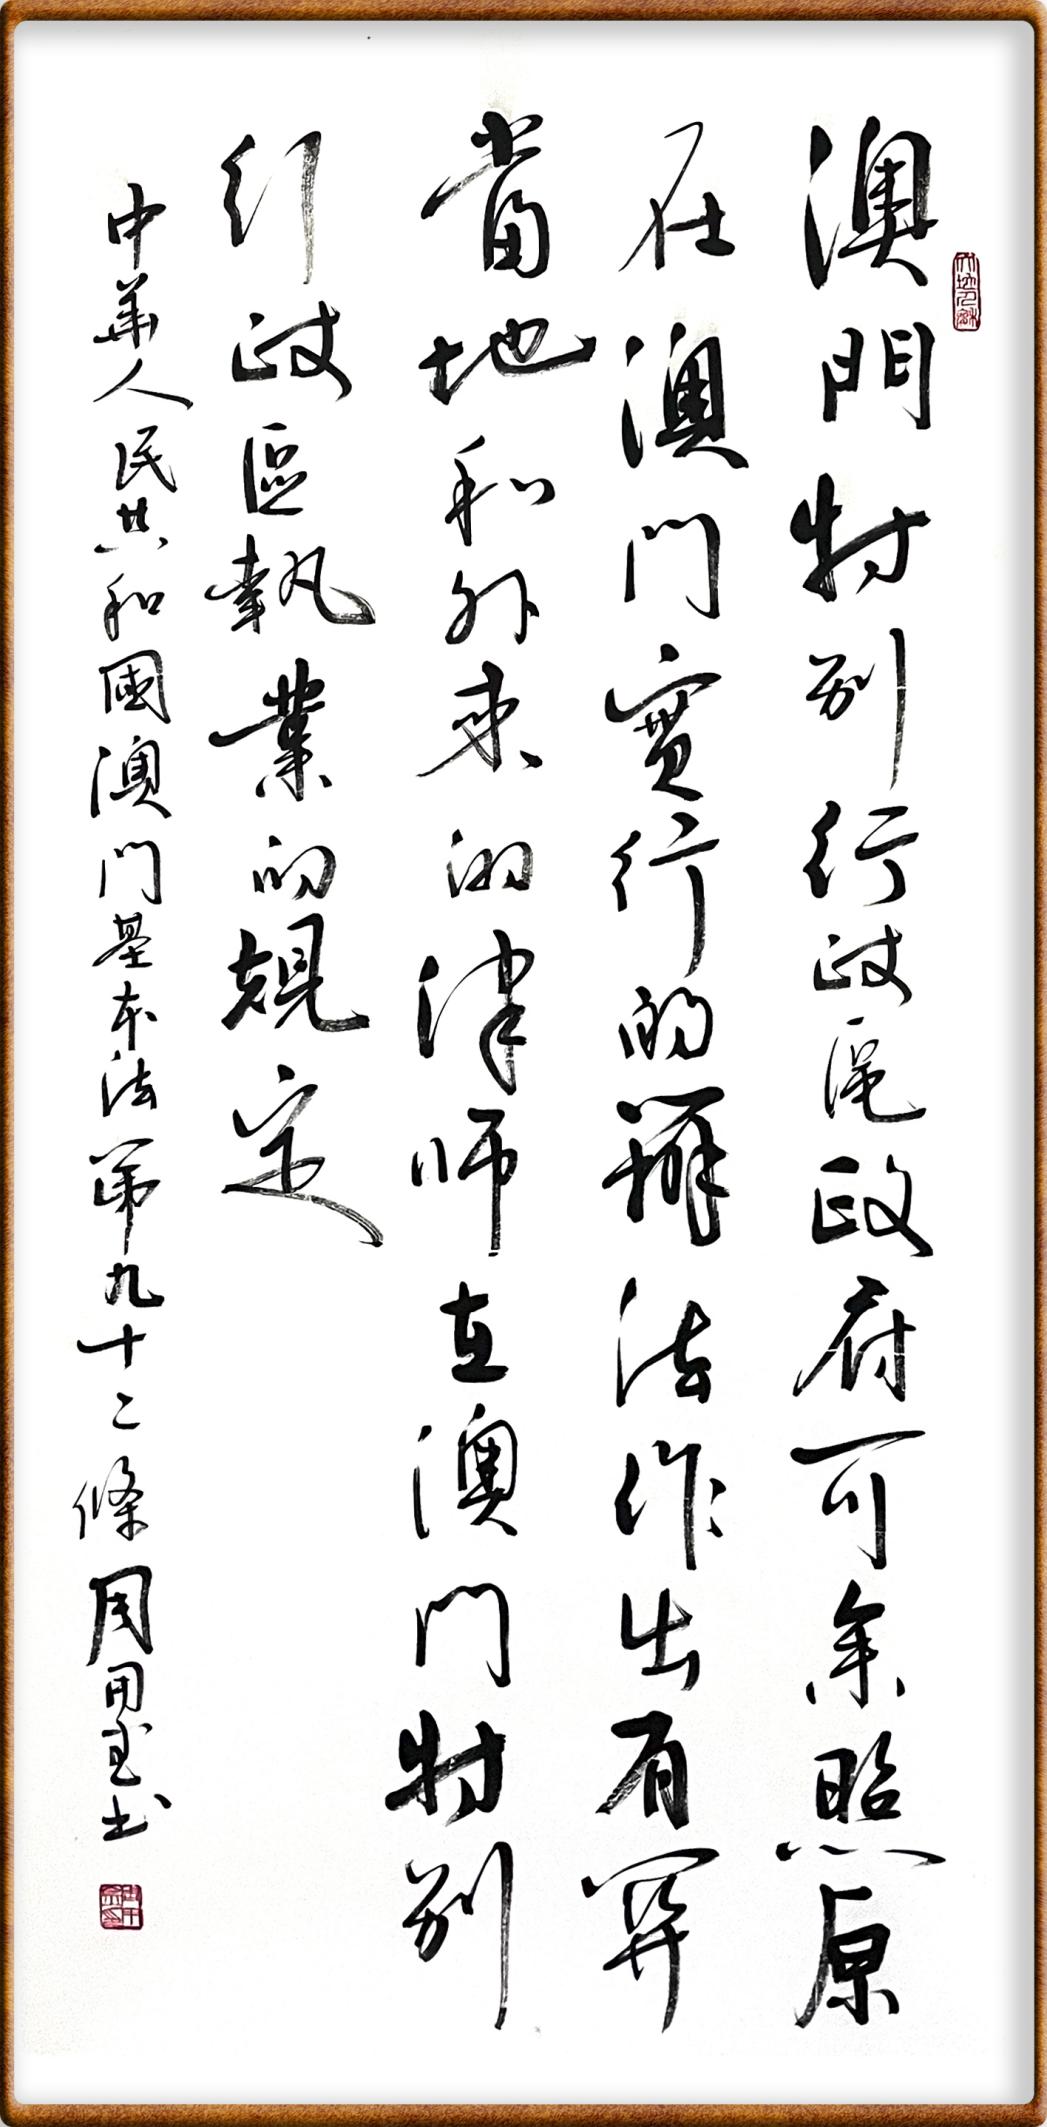 澳門特别行政區政府可參照原
在澳门實行的辦法作出有関
當地和外来的律师在澳门特别
行政區執業的規定
中華人民共和國澳门基本法第九十二條周用玺书